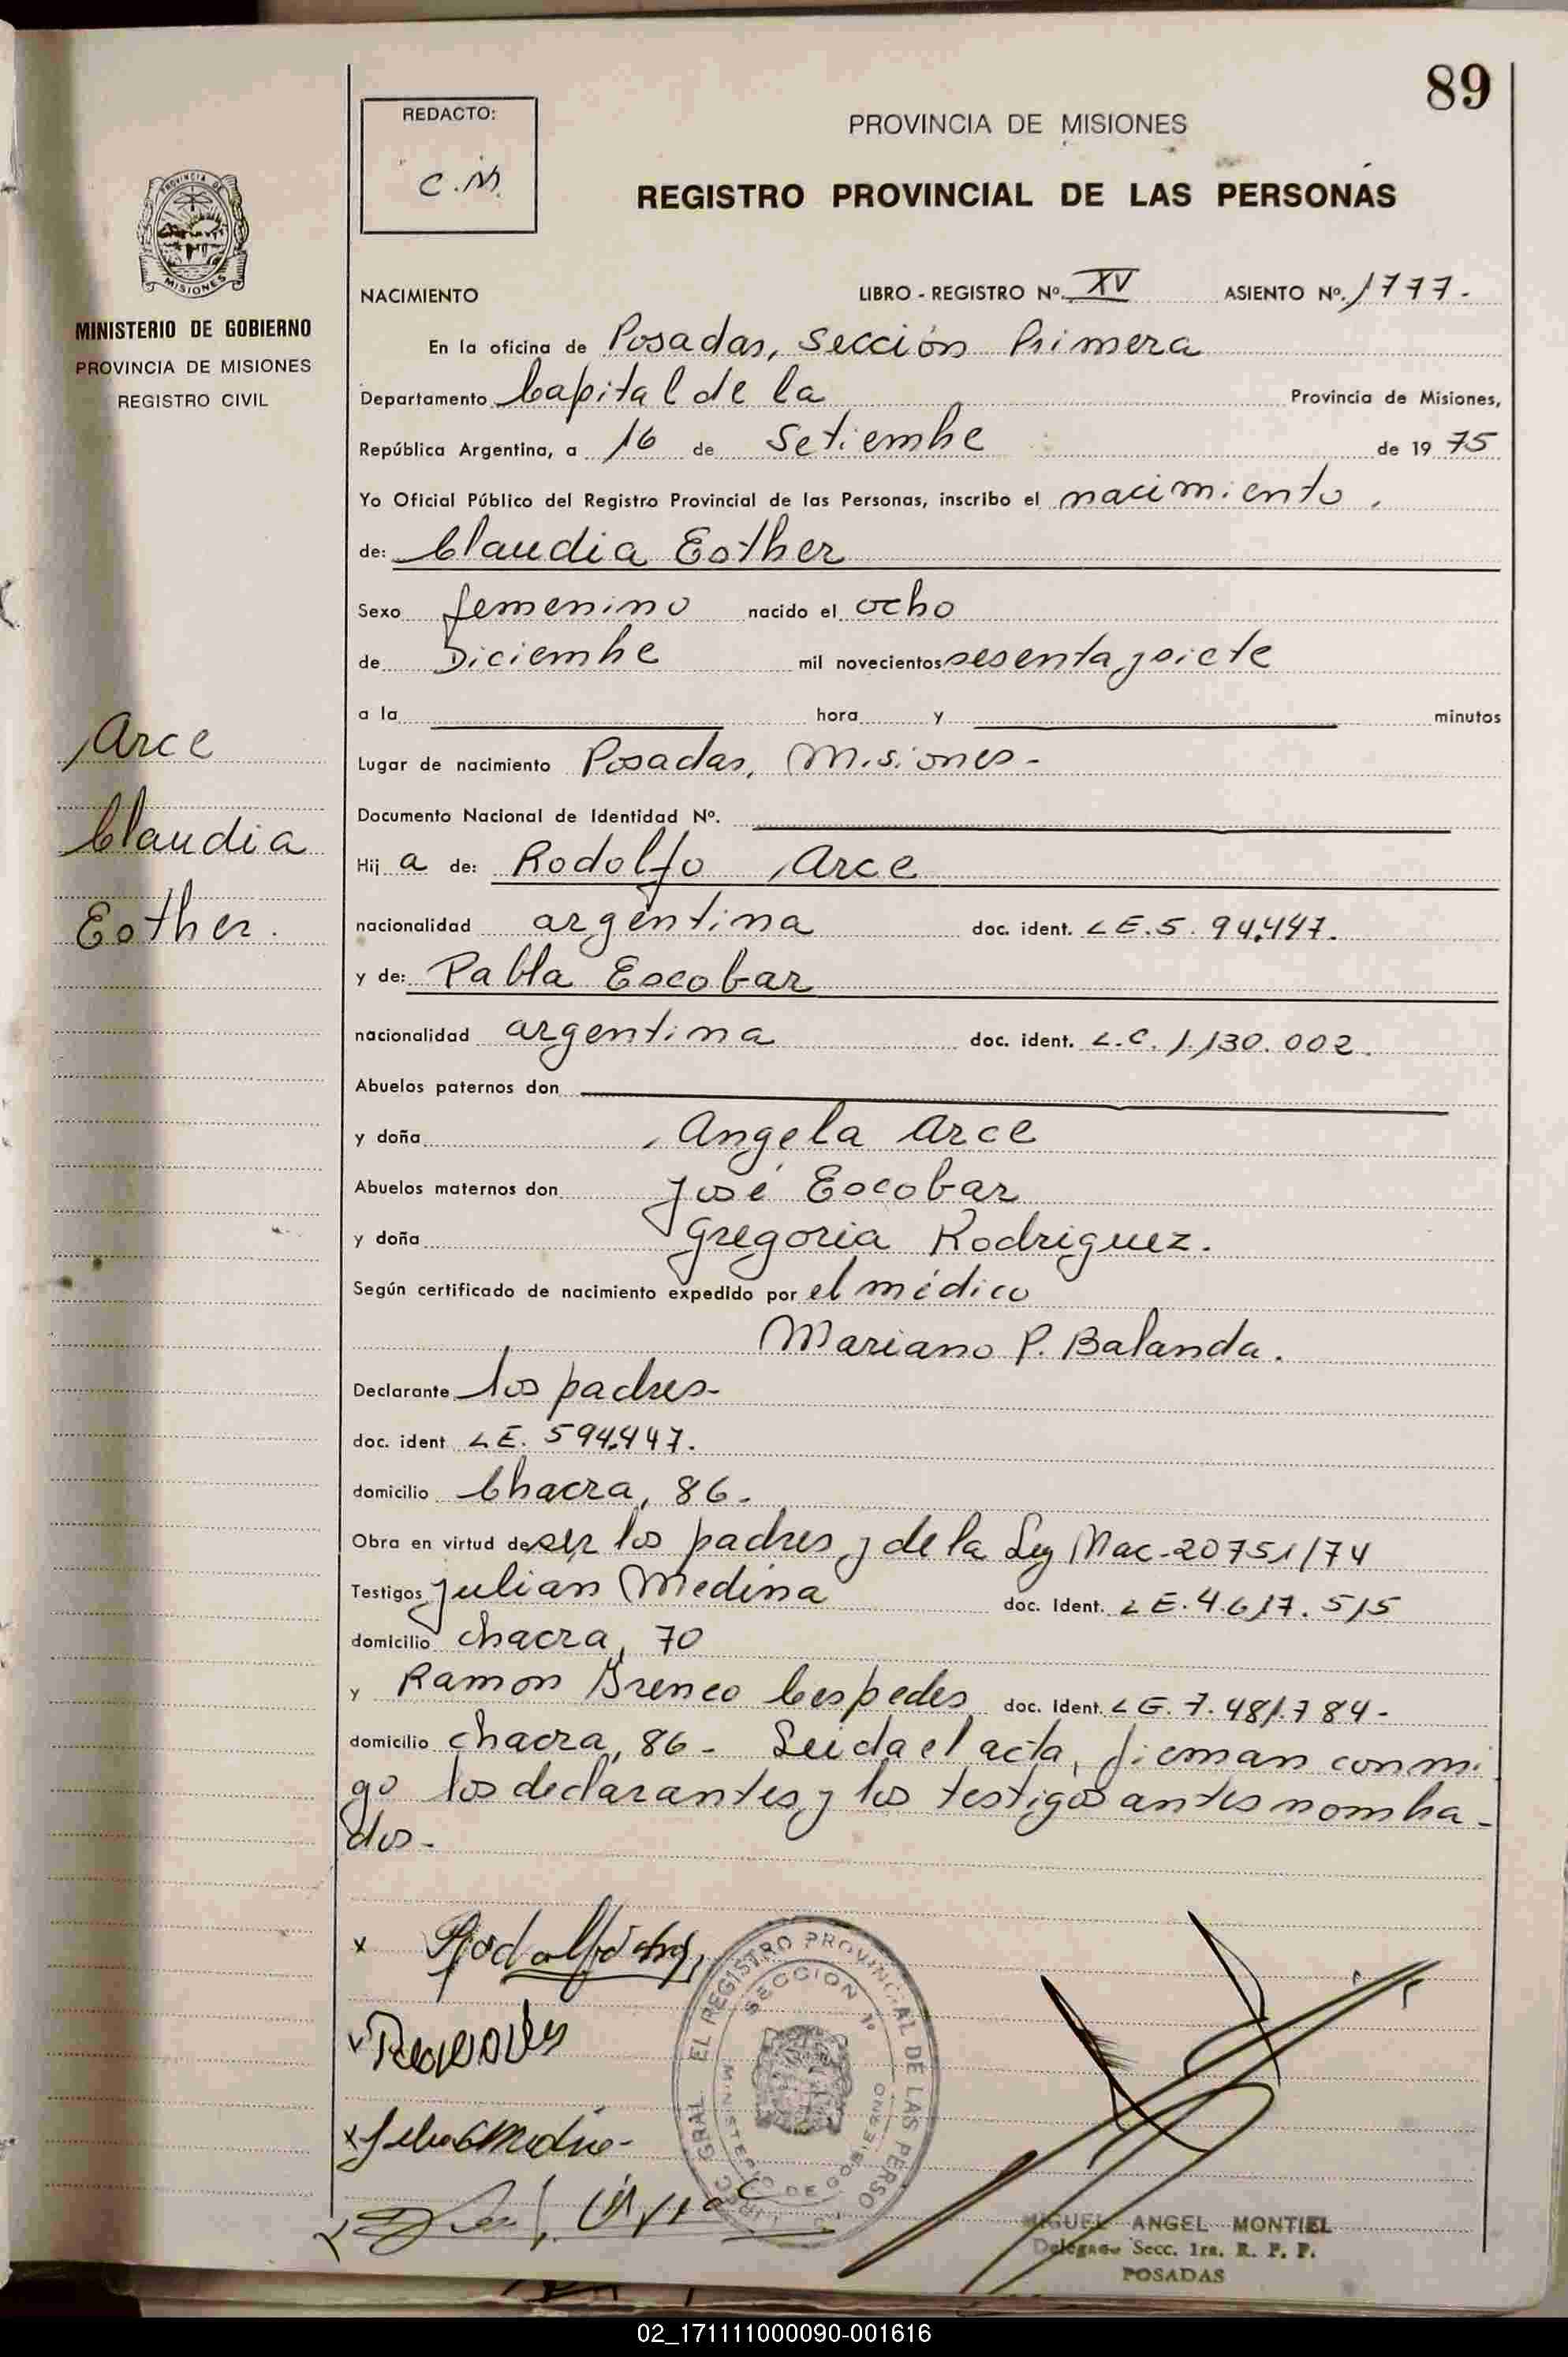 89
REDACTO:
C.M.
PROVINCIA DE MISIONES
REGISTRO PROVINCIAL DE LAS PERSONAS
PROVINCIA DE
MISIONES
MINISTERIO DE GOBIERNO
PROVINCIA DE MISIONES
REGISTRO CIVIL
NACIMIENTO LIBRO - REGISTRO Nº XV ASIENTO Nº. 1777.-
En la oficina de Posadas, Sección Primera
Departamento Capital de la Provincia de Misiones,
República Argentina, a 16 de Setiembre de 19 75
Yo Oficial Público del Registro Provincial de las Personas, inscribo el nacimiento
de: Claudia Esther
Sexo femenino nacido el ocho
de Diciembre mil novecientos sesenta y siete
a la hora y minutos
Lugar de nacimiento Posadas, Misiones-
Documento Nacional de Identidad Nº.
Hij a de: Rodolfo Arce
nacionalidad argentina doc. ident. LE. 5.94.447.
y de: Pabla Escobar
nacionalidad argentina doc. ident. L.C. 1.130.002.
Abuelos paternos don
y doña Angela Arce
Abuelos maternos don José Escobar
y doña Gregoria Rodriguez.
Según certificado de nacimiento expedido por el médico
Mariano P. Balanda.
Declarante los padres-
doc. ident LE. 594.447.
domicilio Chacra, 86-
Obra en virtud de ser los padres y de la Ley Nac-20751/74
Testigos Julian Medina doc. Ident. LE. 4.617.515
domicilio chacra, 70
y Ramon Ireneo Cespedes doc. Ident. LE. 7.481.784-
domicilio chacra, 86- Leida el acta, firman conmi
go los declarantes y los testigos antes nombra-
dos-
Arce
Claudia
Esther.
EL REGISTRO PROVINCIAL DE LAS PERSO
SECCION 1º
MINISTERIO DE GOBIERNO
MIGUEL ANGEL MONTIEL
Delegado Secc. 1ra. R. P. P.
POSADAS
02_171111000090-001616